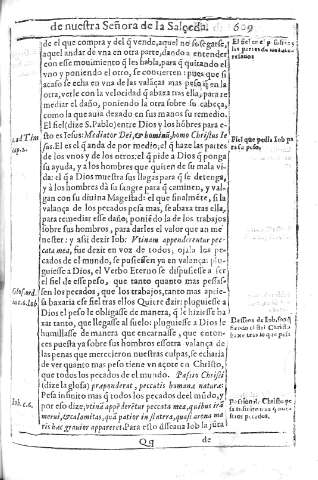 de nuestra Señora de la Salceda. 609
de el que compra y del q̃ vende, aquel no sosegarse,
aquel andar de vna en otra parte, dando a entender
con esse mouimiento q̃ les habla, para q̃ quitando el
vno y poniendo el otro, se concierten: pues que si
acaso se echa en vna de las valãças mas peso q̃ en la
otra, verle con la velocidad q̃ abaxa mas ella, para re
mediar el daño, poniendo la otra sobre su cabeça,
como la que auia dexado en sus manos su remedio.
El fiel (dize S. Pablo) entre Dios y los hõbres para e-
sto es Iesus: Mediator Dei, & hominũ, homo Christus Ie
sus. El es el q̃ anda de por medio, el q̃ haze las partes
de los vnos y de los otros: el q̃ pide a Dios q̃ ponga
su ayuda, y a los hombres que quiten de su mala vi-
da: el q̃ a Dios muestra sus llagas para q̃ se detenga,
y à los hombres dà su sangre para q̃ caminen, y val-
gan con su diuina Magestad: el que finalmẽte, si la
valança de los pecados pesa mas, se abaxa tras ella,
para remediar esse daño, poniẽdo la de los trabajos
sobre sus hombros, para darles el valor que an me
nester: y assi dezir Iob: Vtinam appenderentur pec-
cata mea, fue dezir en voz de todos, ojala los pe-
cados de el mundo, se pusiessen ya en valança: plu-
guiesse a Dios, el Verbo Eterno se dispusiesse a ser
el fiel de esse peso, que tanto quanto mas pessas-
sen los pecados, que los trabajos, tanto mas aprie-
sa baxaria esse fiel tras ellos Quitre dair: pluguiesse a
Dios el peso le obligasse de manera, q̃ le hiziesse ba
xar tanto, que llegasse al suelo: pluguiesse a Dios le
humillasse de manera que encarnasse, que enton-
ces puesta ya sobre sus hombros essotra valança de
las penas que merecieron nuestras culpas, se echaria
de ver quanto mas peso tiene vn açote en Christo,
que todos los pecados de el mundo. Passio Christi
(dize la glosa) preponderat, peccatis humanæ naturæ:
Pesa infinito mas q̃ todos los pecados deel mũdo, y
por eso dize, vtinã appẽderẽtur peccata mea, quibus irã
merui, & calamitas, quã patior in statera, quasi arena ma
ris hæc grauior appareret. Para esto desseaua Iob la justa
Qq
de
1. ad Tim
cap. 2.
Iob. c. 6.
Fiel que pesla Iob pa
ra su peso.